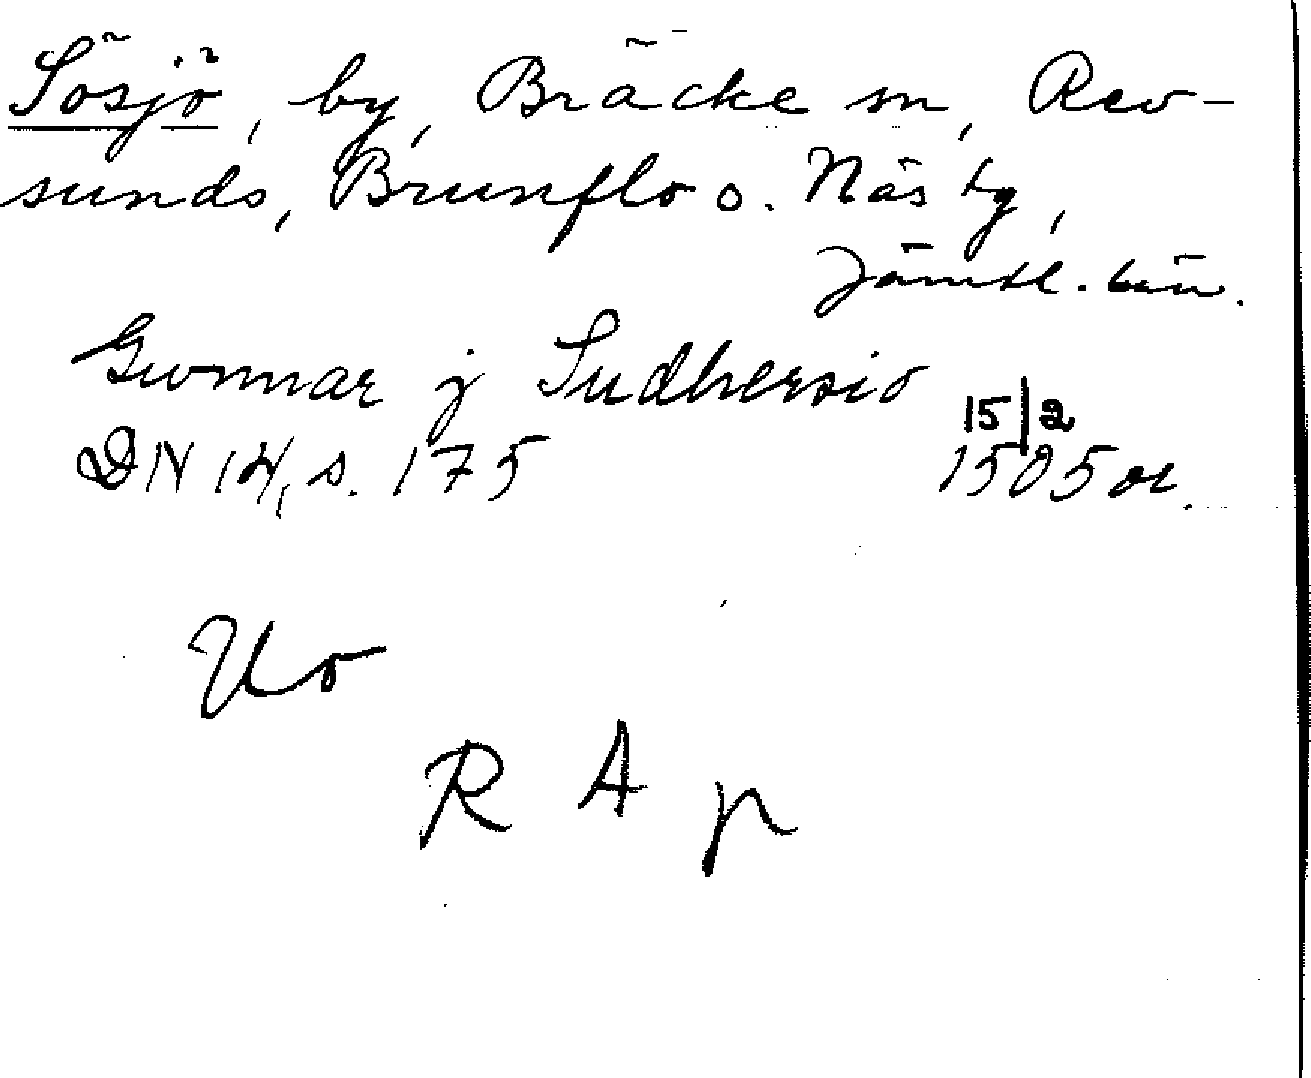 Sösjö, by, Bräcke sn, Rev-
sunds, Brunflo o. Näs tg,
Jämtl. län.
Gunnar j Sudhersio
15/2
DN 14, s. 175 1505 or.
Uo
R A p